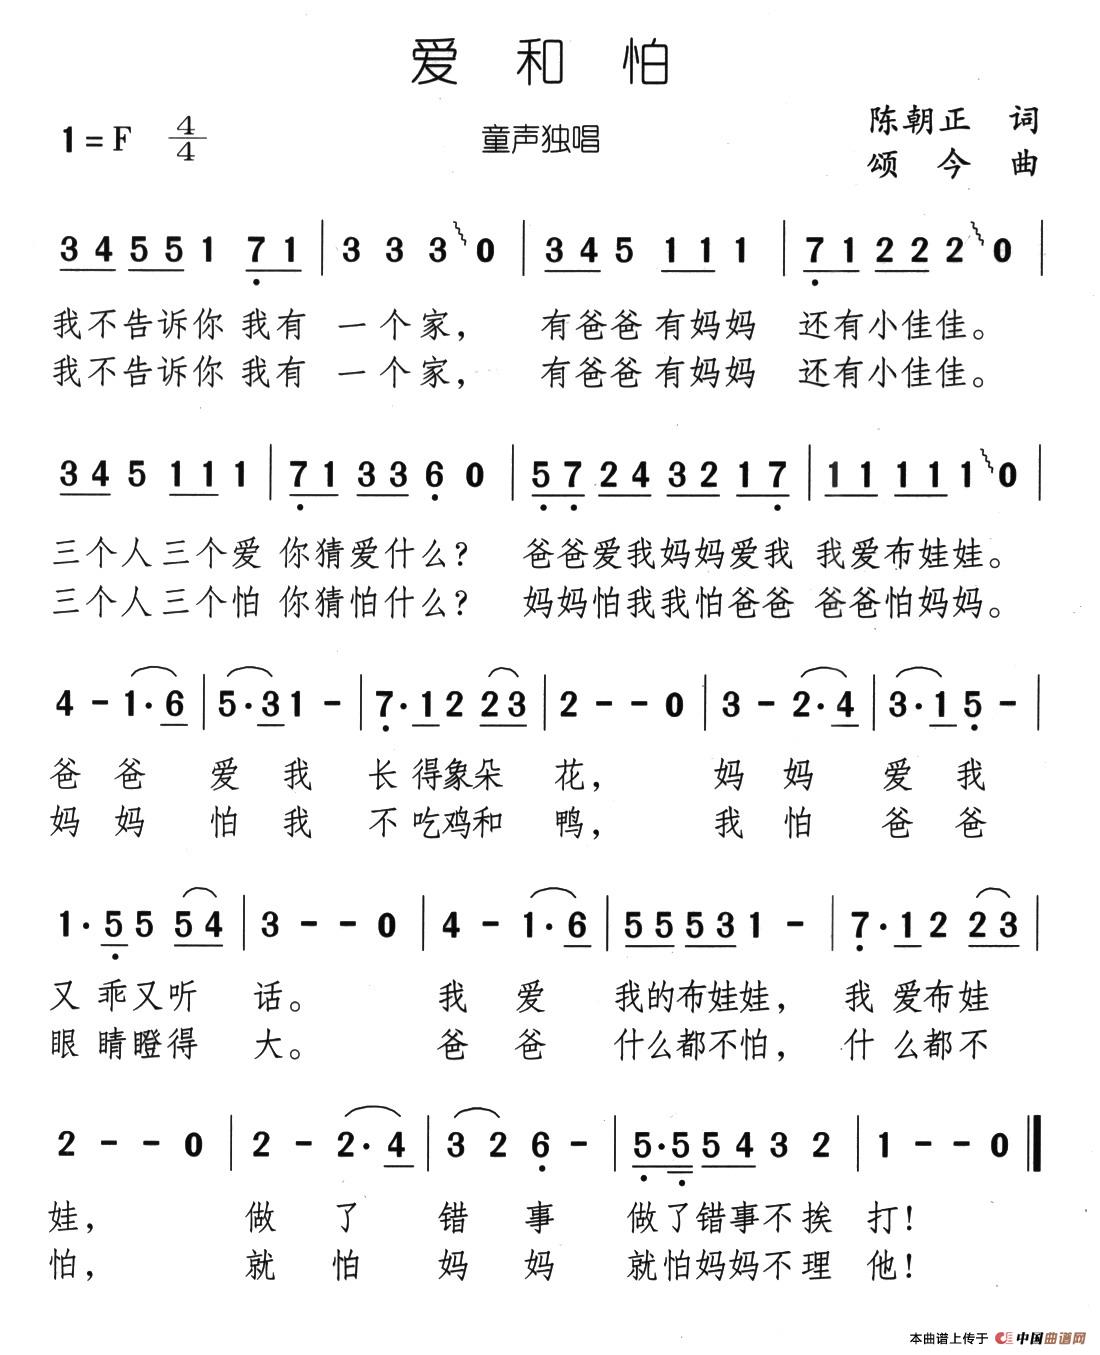 爱 和 怕
1=F 4/4
童声独唱
陈朝正 词
颂 今 曲
3 4 5 5 1 7 1 | 3 3 3 0 | 3 4 5 1 1 1 1 | 7 1 2 2 2 2 0 |
我不告诉你 我有 一个家， 有爸爸 有妈妈 还有小佳佳。
我不告诉你 我有 一个家， 有爸爸 有妈妈 还有小佳佳。
3 4 5 1 1 1 1 | 7 1 3 3 6 0 | 5 7 2 4 3 2 1 7 | 1 1 1 1 1 0 |
三个人 三个爱 你猜爱什么？ 爸爸爱我妈妈爱我 我爱布娃娃。
三个人 三个怕 你猜怕什么？ 妈妈怕我我怕爸爸 爸爸怕妈妈。
4 - 1· 6 | 5· 3 1 - | 7· 1 2 2 3 | 2 - - 0 | 3 - 2· 4 | 3· 1 5 - |
爸 爸 爱 我 长 得象朵 花， 妈 妈 爱 我
妈 妈 怕 我 不 吃鸡和 鸭， 我 怕 爸 爸
1· 5 5 5 4 | 3 - - 0 | 4 - 1· 6 | 5 5 5 3 1 - | 7· 1 2 2 3 |
又 乖又听 话。 我 爱 我的布娃娃， 我 爱布娃
眼 睛瞪得 大。 爸 爸 什么都不怕， 什 么都不
2 - - 0 | 2 - 2· 4 | 3 2 6 - | 5· 5 5 4 3 2 | 1 - - 0 ‖
娃， 做 了 错 事 做了错事不挨 打！
怕， 就 怕 妈 妈 就怕妈妈不理 他！
本曲谱上传于 中国曲谱网